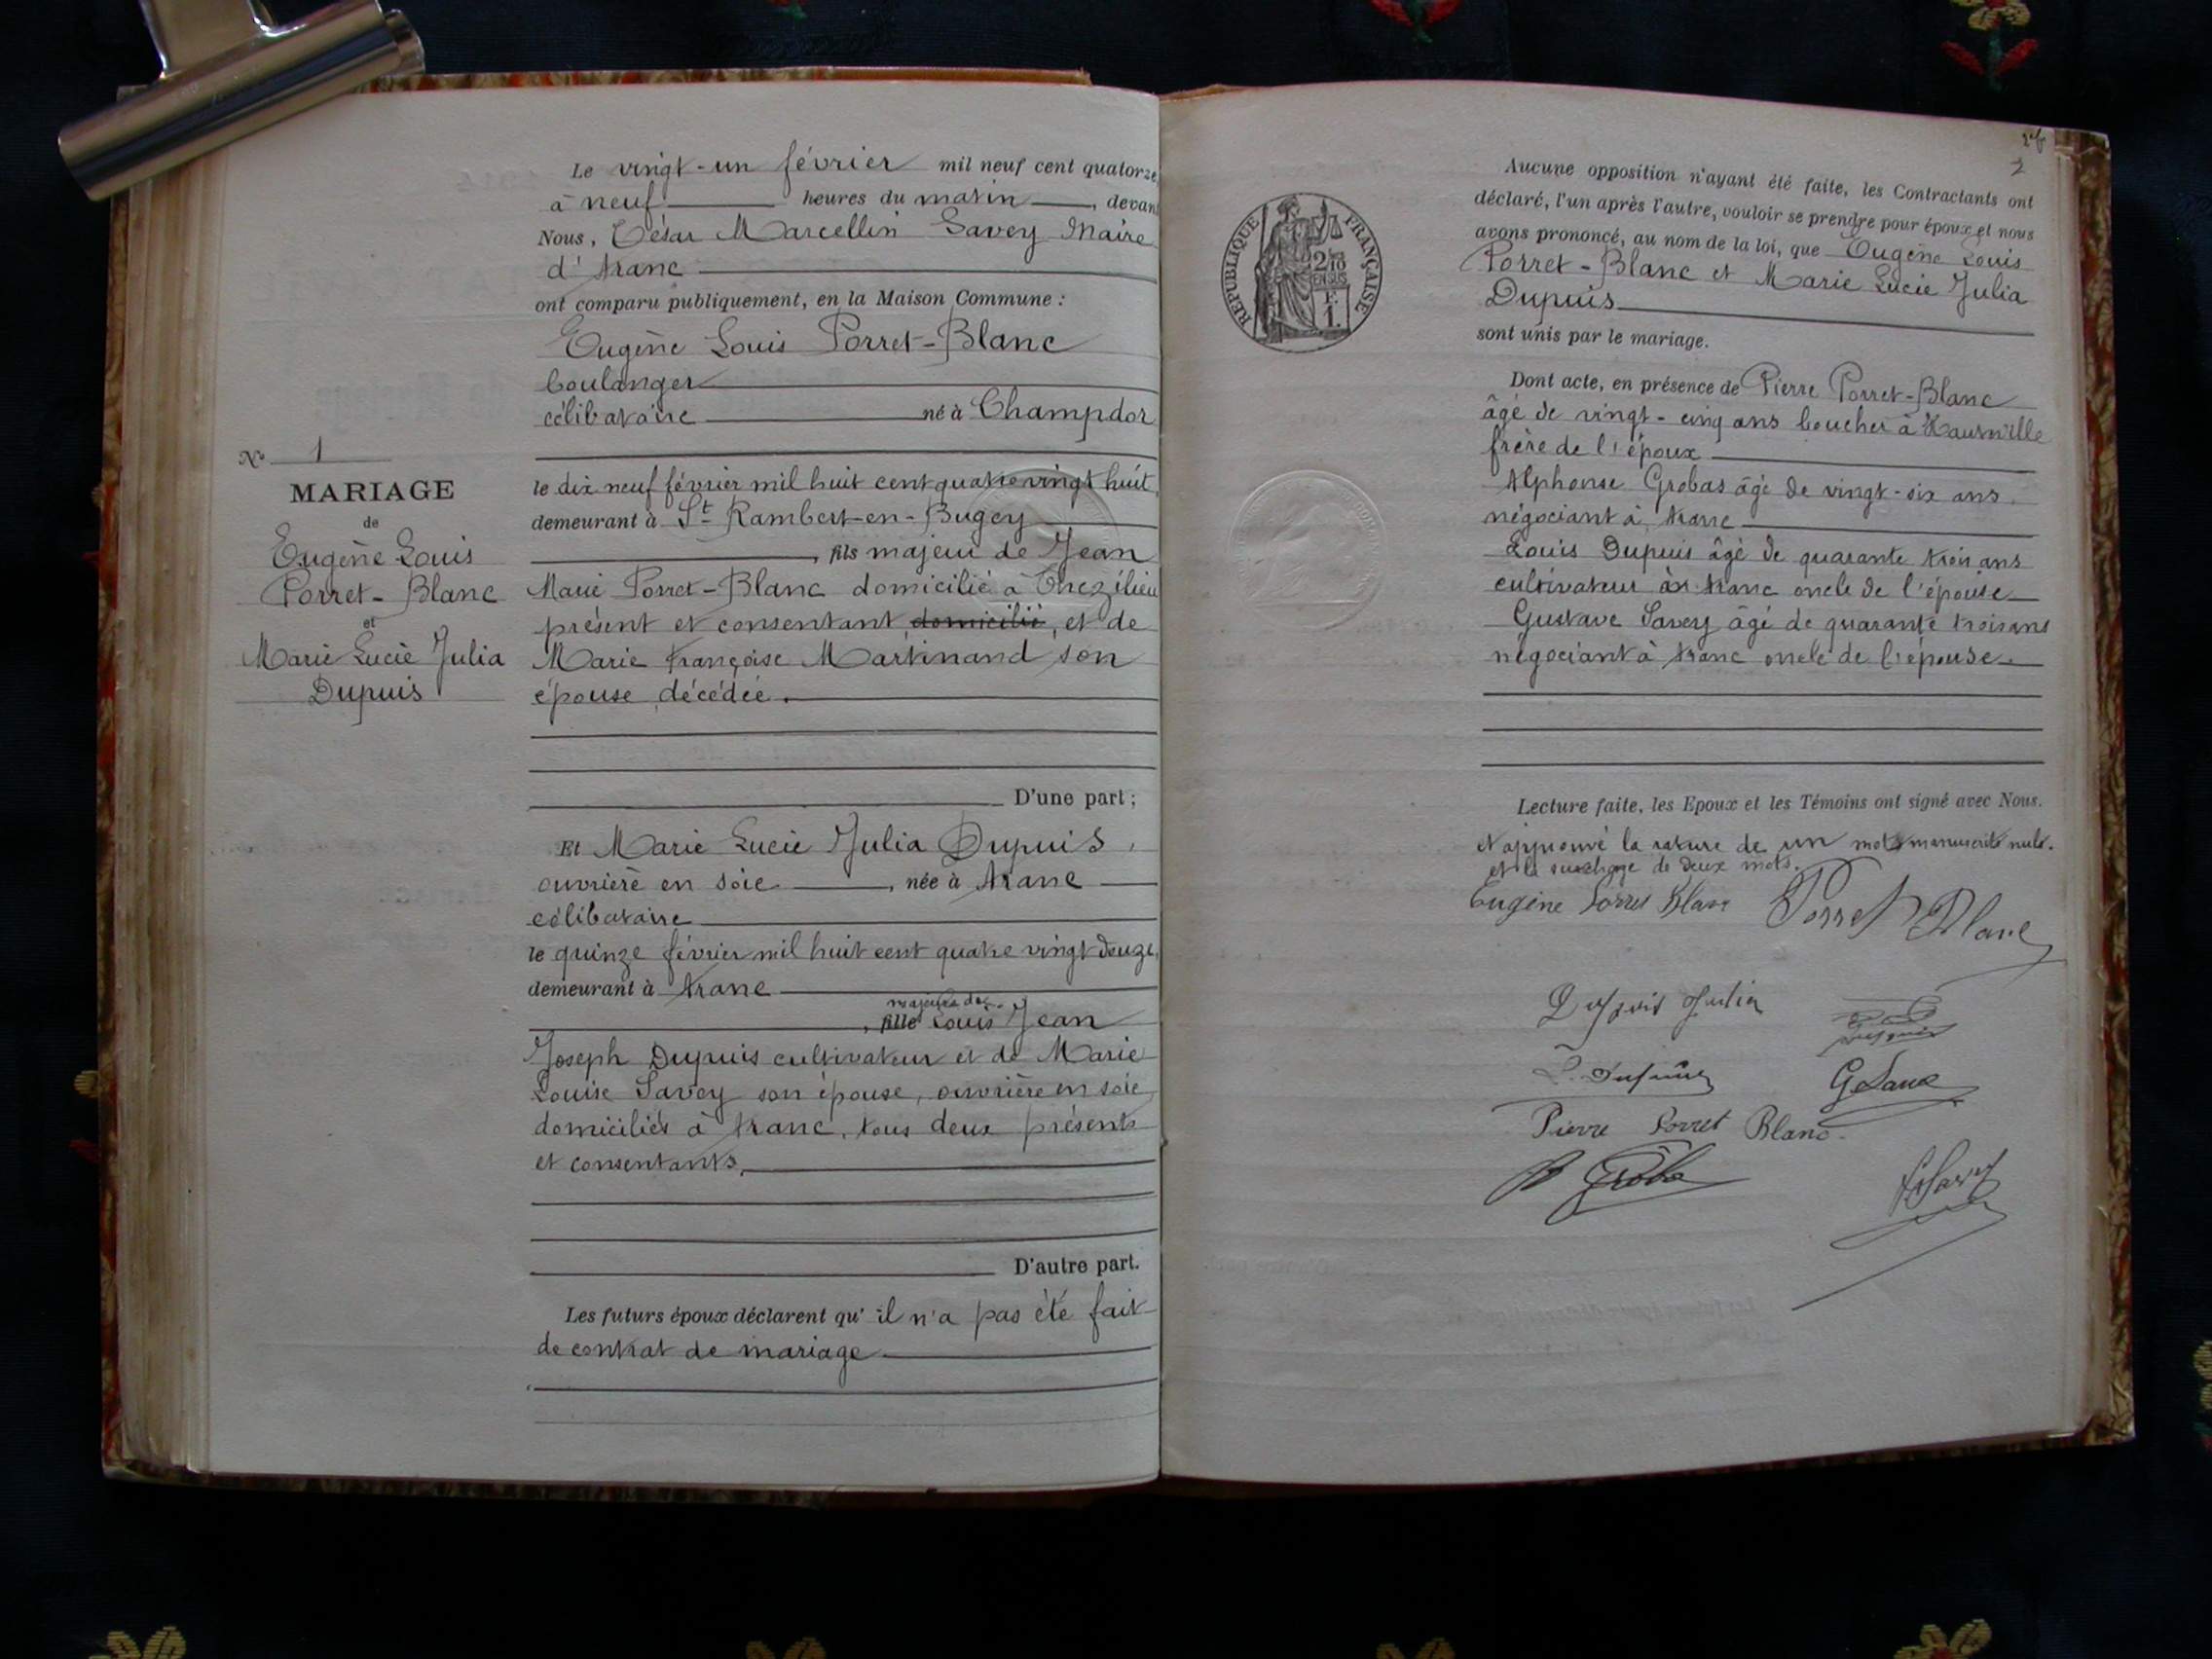 Le vingt-un février mil neuf cent quatorze,
à neuf heures du matin, devant
Nous, César Marcellin Savey Maire
d'Aranc
ont comparu publiquement, en la Maison Commune :
Eugène Louis Porret-Blanc
boulanger
célibataire né à Champdor
le dix neuf février mil huit cent quatre vingt huit,
demeurant à St Rambert-en-Bugey
, fils majeur de Jean
Marie Porret-Blanc domicilié à Thezilieu
présent et consentant, domicilié, et de
Marie Françoise Martinand son
épouse décédée.
D'une part ;
Et Marie Lucie Julia Dupuis,
ouvrière en soie, née à Aranc
célibataire
le quinze février mil huit cent quatre vingt douze,
demeurant à Aranc
majeure de
, fille Louis Jean
Joseph Dupuis cultivateur et de Marie
Louise Savey son épouse, ouvrière en soie
domiciliés à Aranc, tous deux présents
et consentants.
D'autre part.
Les futurs époux déclarent qu'il n'a pas été fait
de contrat de mariage
No 1
MARIAGE
de
Eugène Louis
Porret-Blanc
et
Marie Lucie Julia
Dupuis
2
Aucune opposition n'ayant été faite, les Contractants ont
déclaré, l'un après l'autre, vouloir se prendre pour époux et nous
avons prononcé, au nom de la loi, que Eugène Louis
Porret-Blanc et Marie Lucie Julia
Dupuis
sont unis par le mariage.
Dont acte, en présence de Pierre Porret-Blanc
âgé de vingt-cinq ans boucher à Hauteville
frère de l'époux
Alphonse Grobas âgé de vingt-six ans.
négociant à Aranc
Louis Dupuis âgé de quarante trois ans
cultivateur à Aranc oncle de l'épouse
Gustave Savey âgé de quarante trois ans
négociant à Aranc oncle de l'épouse.
Lecture faite, les Epoux et les Témoins ont signé avec Nous.
et approuvé la rature de un mot manuscrit nul.
et la surcharge de deux mots.
Eugène Porret Blanc
Porret Blanc
Dupuis Julia
L. Dupuis
Pierre Porret Blanc
RÉPUBLIQUE FRANÇAISE
2/10
EN SUS
F.
1.